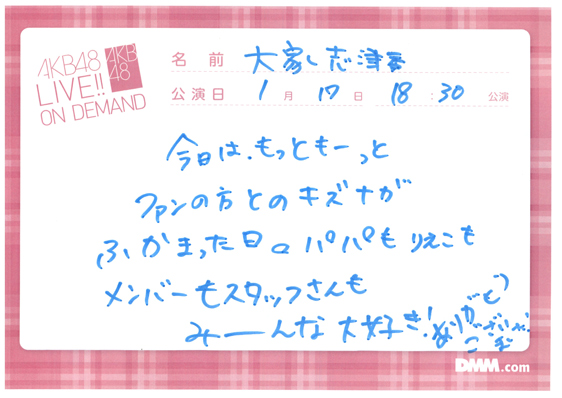 AKB48
LIVE!!
ON DEMAND
AKB
48
名前 大家志津香
公演日 1月 17日 18:30 公演
今日は、もっともーっと
ファンの方とのキズナが
ふかまった日。パパもりえこも
メンバーもスタッフさんも
みーんな大好き!ありがとう
ございま
DMM.com